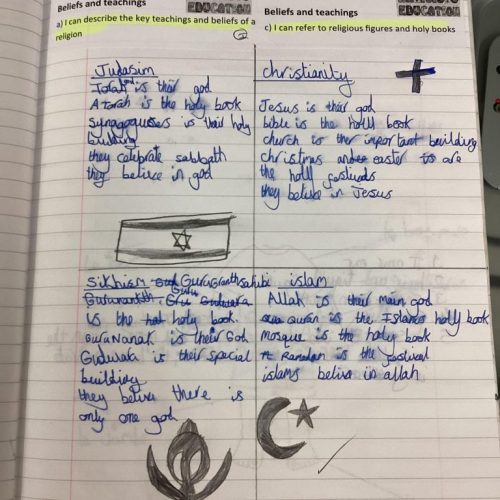 Beliefs and teachings
a) I can describe the key teachings and beliefs of a
religion
EDUCATION
Beliefs and teachings
c) I can refer to religious figures and holy books
EDUCATION
Judasim
Torah is thair god
A Torah is the holy book
Synagogusses is their holy
building
they calebrate sabbath
they belive in god
christianity
Jesus is thair god
bible is the holll book
church is ther important building
christmas and easter are
the holl festivals
they belive in Jesus
Sikhism Guru Granth Sahib
is the holy book.
Guru Nanak is their God
Gudwara is their special
building
they belive there is
only one god
islam
Allah is their main god
Quran is the Islams holly book
mosque is the holy book
Ramadan is the festival
islams belive in allah